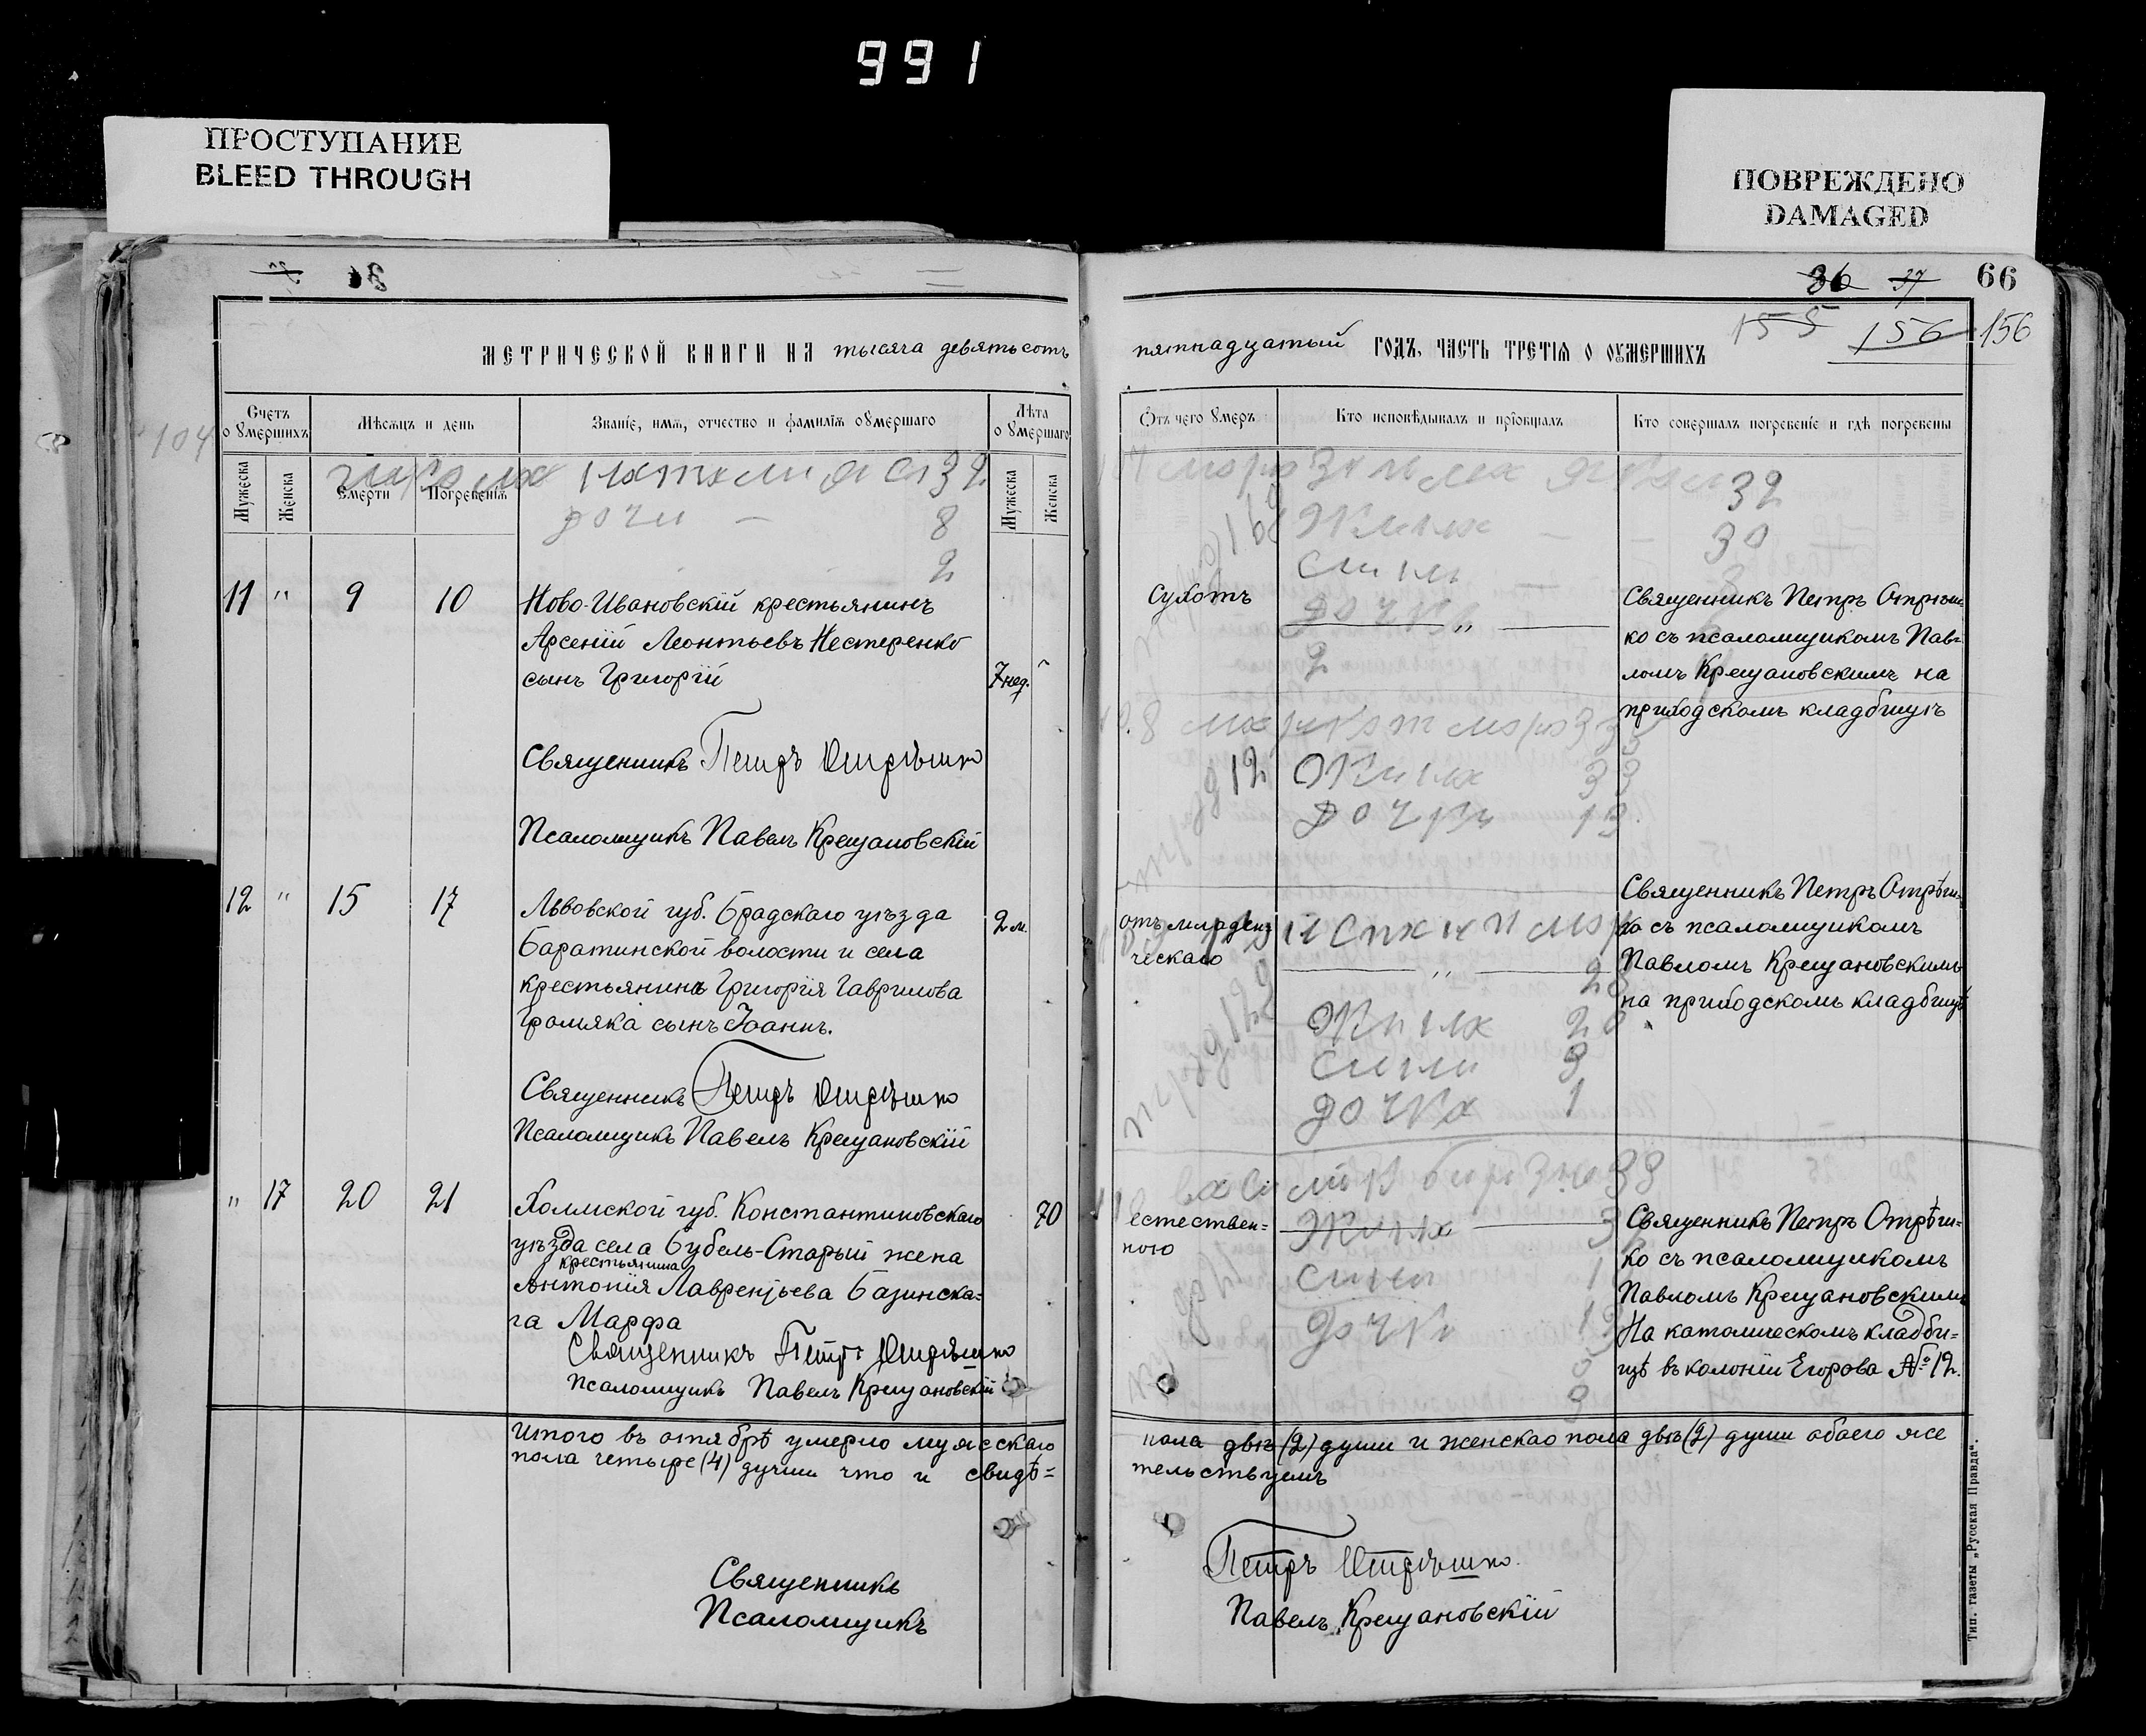 991
ПРОСТУПАНИЕ
BLEED THROUGH
ПОВРЕЖДЕНО
DAMAGED
36 37 66
155 156 156
МЕТРИЧЕСКОЙ КНИГИ НА тысяча девятьсотъ
пятнадцатый ГОДЪ, ЧАСТЬ ТРЕТІЯ О ОУМЕРШИХЪ
104
Счетъ о умершихъ
Мѣсяцъ и день
Званіе, имя, отчество и фамилія оумершаго
Лѣта о умершаго
Отъ чего умеръ
Кто исповѣдывалъ и пріобщалъ
Кто совершалъ погребеніе и гдѣ погребены
Мужеска
Женска
Смерти
Погребенія
Мужеска
Женска
32
дочи — 8
2
32
30
11 " 9 10
Ново-Ивановскій крестьянинъ
Арсеній Леонтьевъ Нестеренко
сынъ Григорій
7 нед.
Сухотъ
"
Священникъ Петръ Отрѣш-
ко съ псаломщикомъ Пав-
ломъ Крещановскимъ на
приходскомъ кладбищѣ
Священникъ Петръ Отрѣшко
Псаломщикъ Павелъ Крещановскій
12 " 15 17
Львовской губ. Брадскаго уѣзда
Баратинской волости и села
крестьянина Григорія Гаврилова
Громяка сынъ Іоаннъ.
2 м.
отъ младен-
ческаго
"
Священникъ Петръ Отрѣш-
ко съ псаломщикомъ
Павломъ Крещановскимъ
на приходскомъ кладбищѣ
Священникъ Петръ Отрѣшко
Псаломщикъ Павелъ Крещановскій
" 17 20 21
Холмской губ. Константиновскаго
уѣзда села Бубель-Старый жена
крестьянина
Антонія Лаврентьева Базинска-
га Марфа
70
естествен-
ною
Священникъ Петръ Отрѣш-
ко съ псаломщикомъ
Павломъ Крещановскимъ
На католическомъ кладби-
щѣ въ колоніи Егорова № 12.
Священникъ Петръ Отрѣшко
псаломщикъ Павелъ Крещановскій
Итого въ октябрѣ умерло мужескаго
пола двѣ (2) души и женскаго пола двѣ (2) души обаего же
пола четыре (4) души что и свидѣ-
тельствуемъ
Священникъ
Петръ Отрѣшко.
Псаломщикъ
Павелъ Крещановскій
Тип. газеты „Русская Правда“.